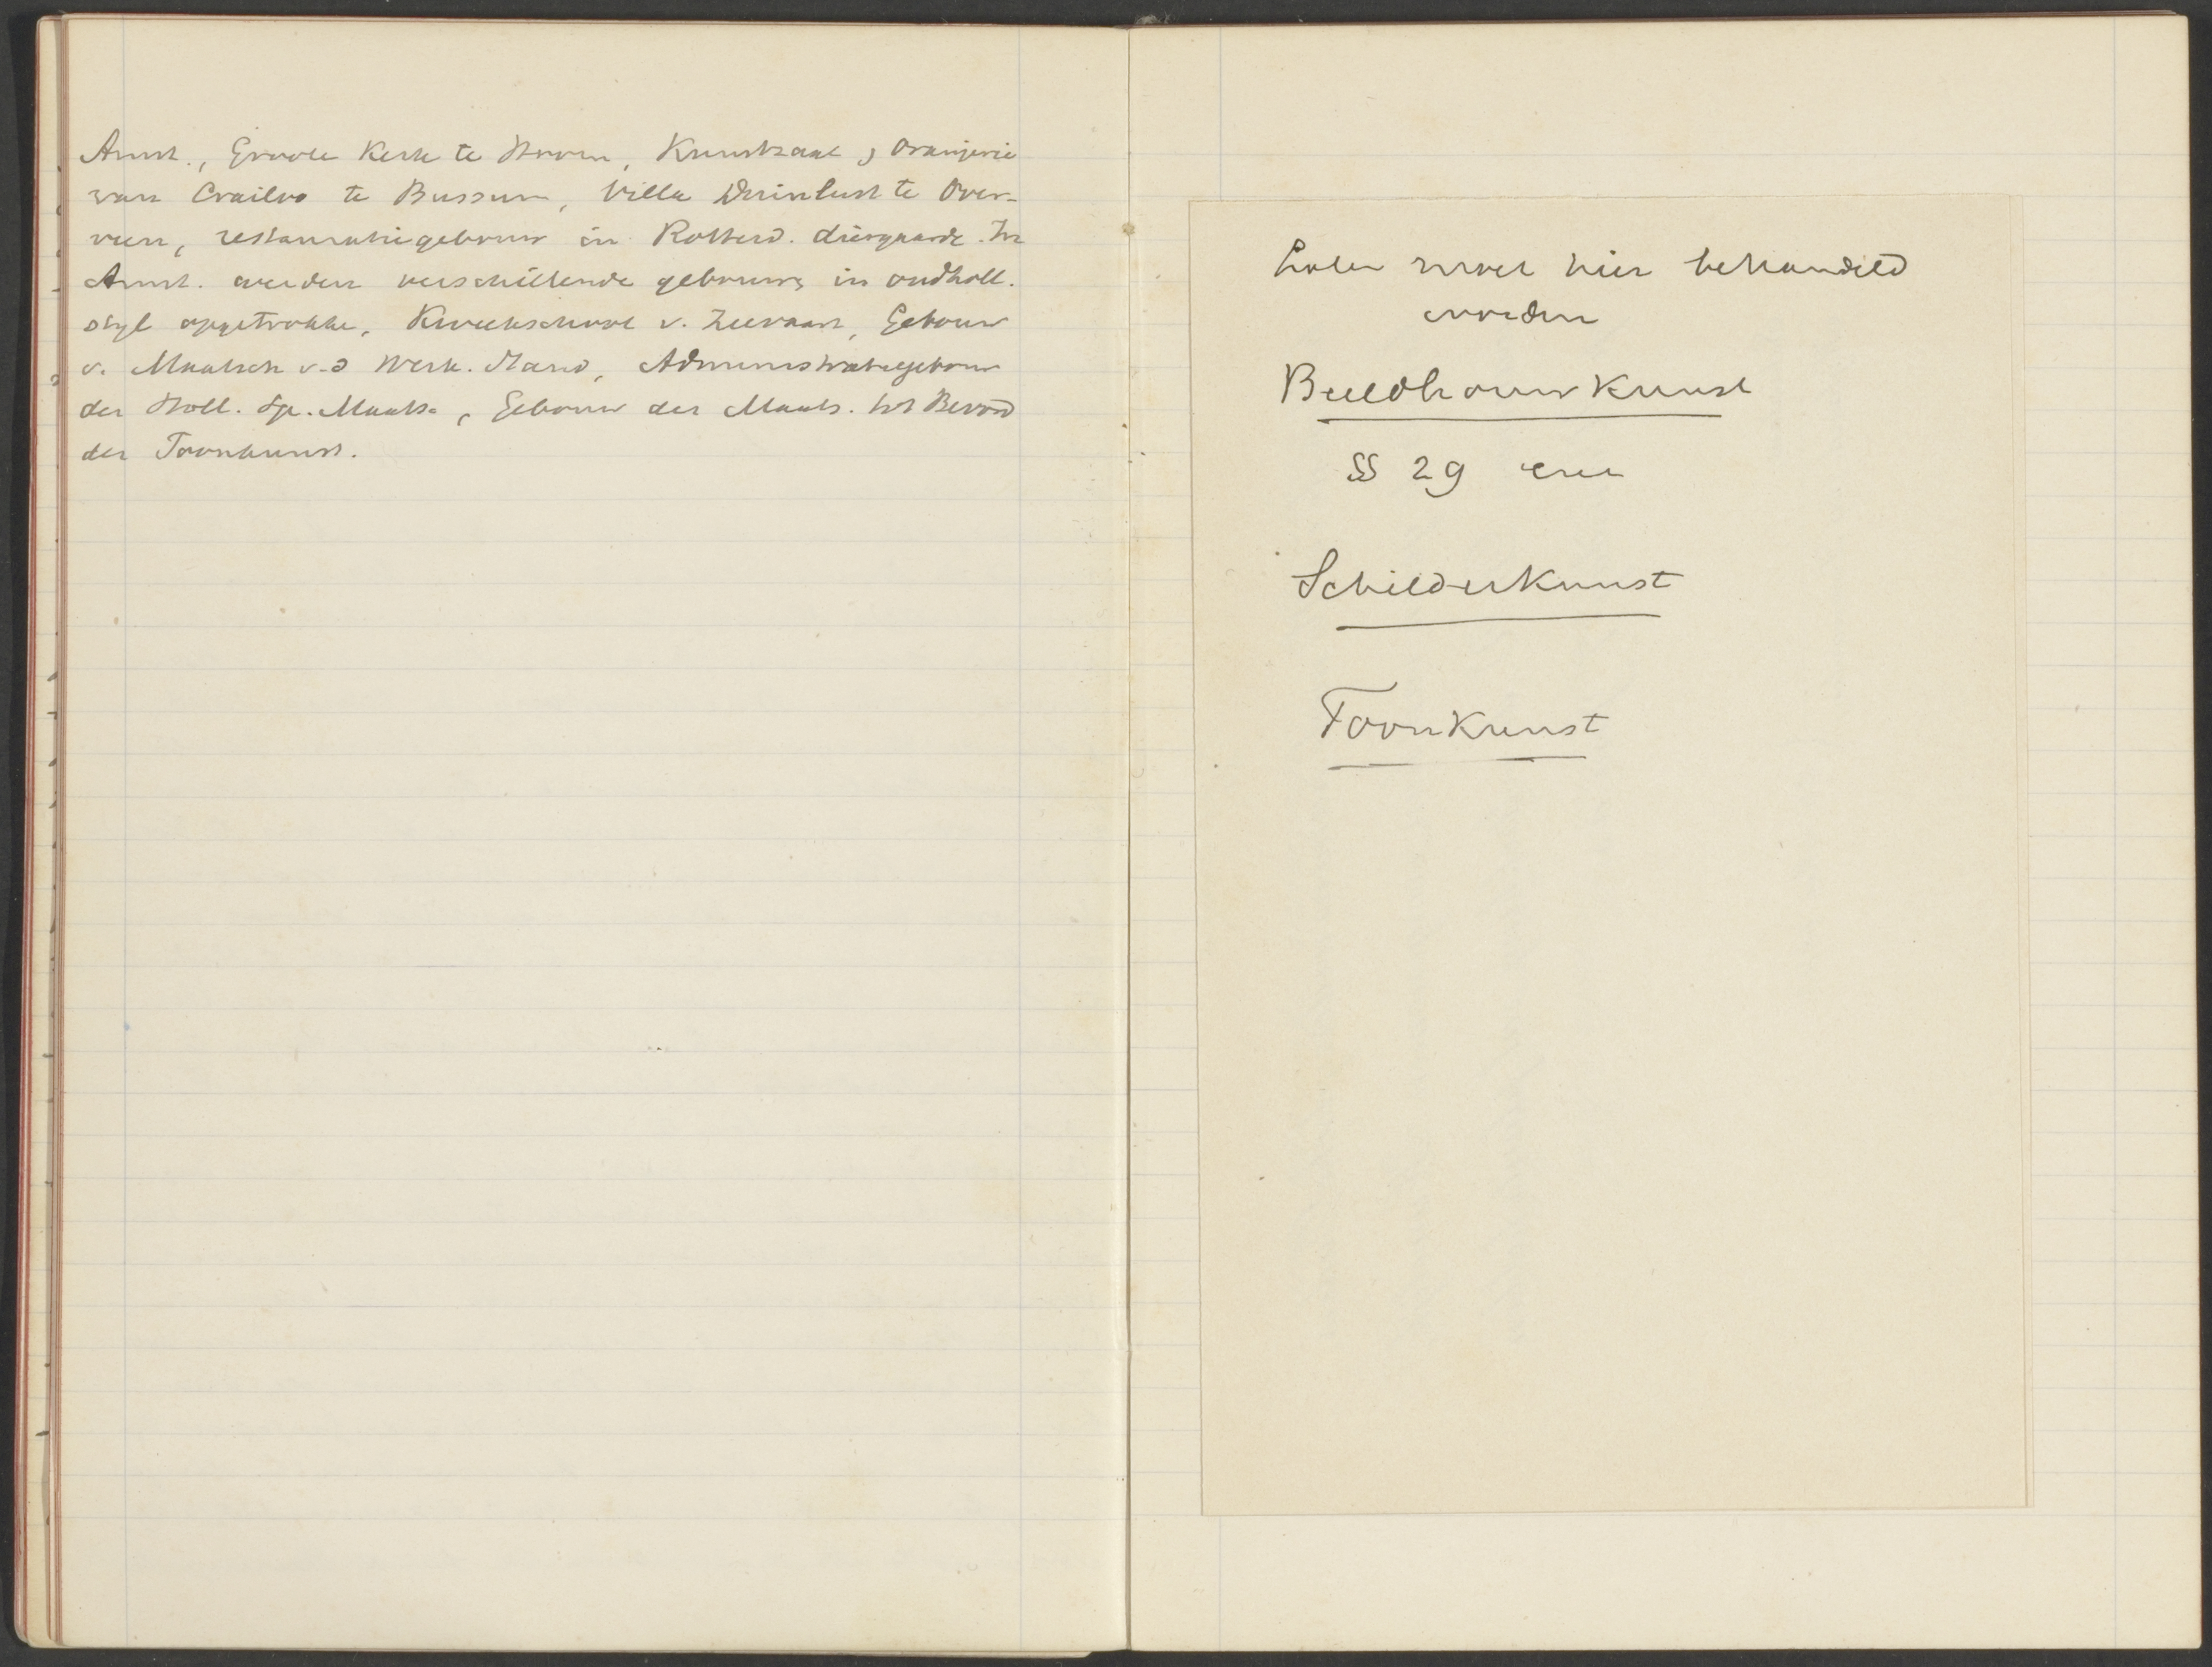 Amst., Groote Kerk te Hoorn, Kunstzaal, Oranjerie
van Crailoo te Bussum, Villa Duinlust te Over-
veen, restauratiegebouw in Rotterd. diergaarde. In
Amst. werden verschillende gebouwe in oudholl.
styl opgetrokke, Kweekschool v. Zeevaart, Gebouw
v. Maatsch v.d Werk. Stand, Administratiegebouw
der Holl. Sp. Maats., Gebouw der Maats. tot Bevord
der Toonkunst.
Later moet hier behandeld
worden
Beeldhouwkunst
§§ 29 enz
Schilderkunst
Toonkunst